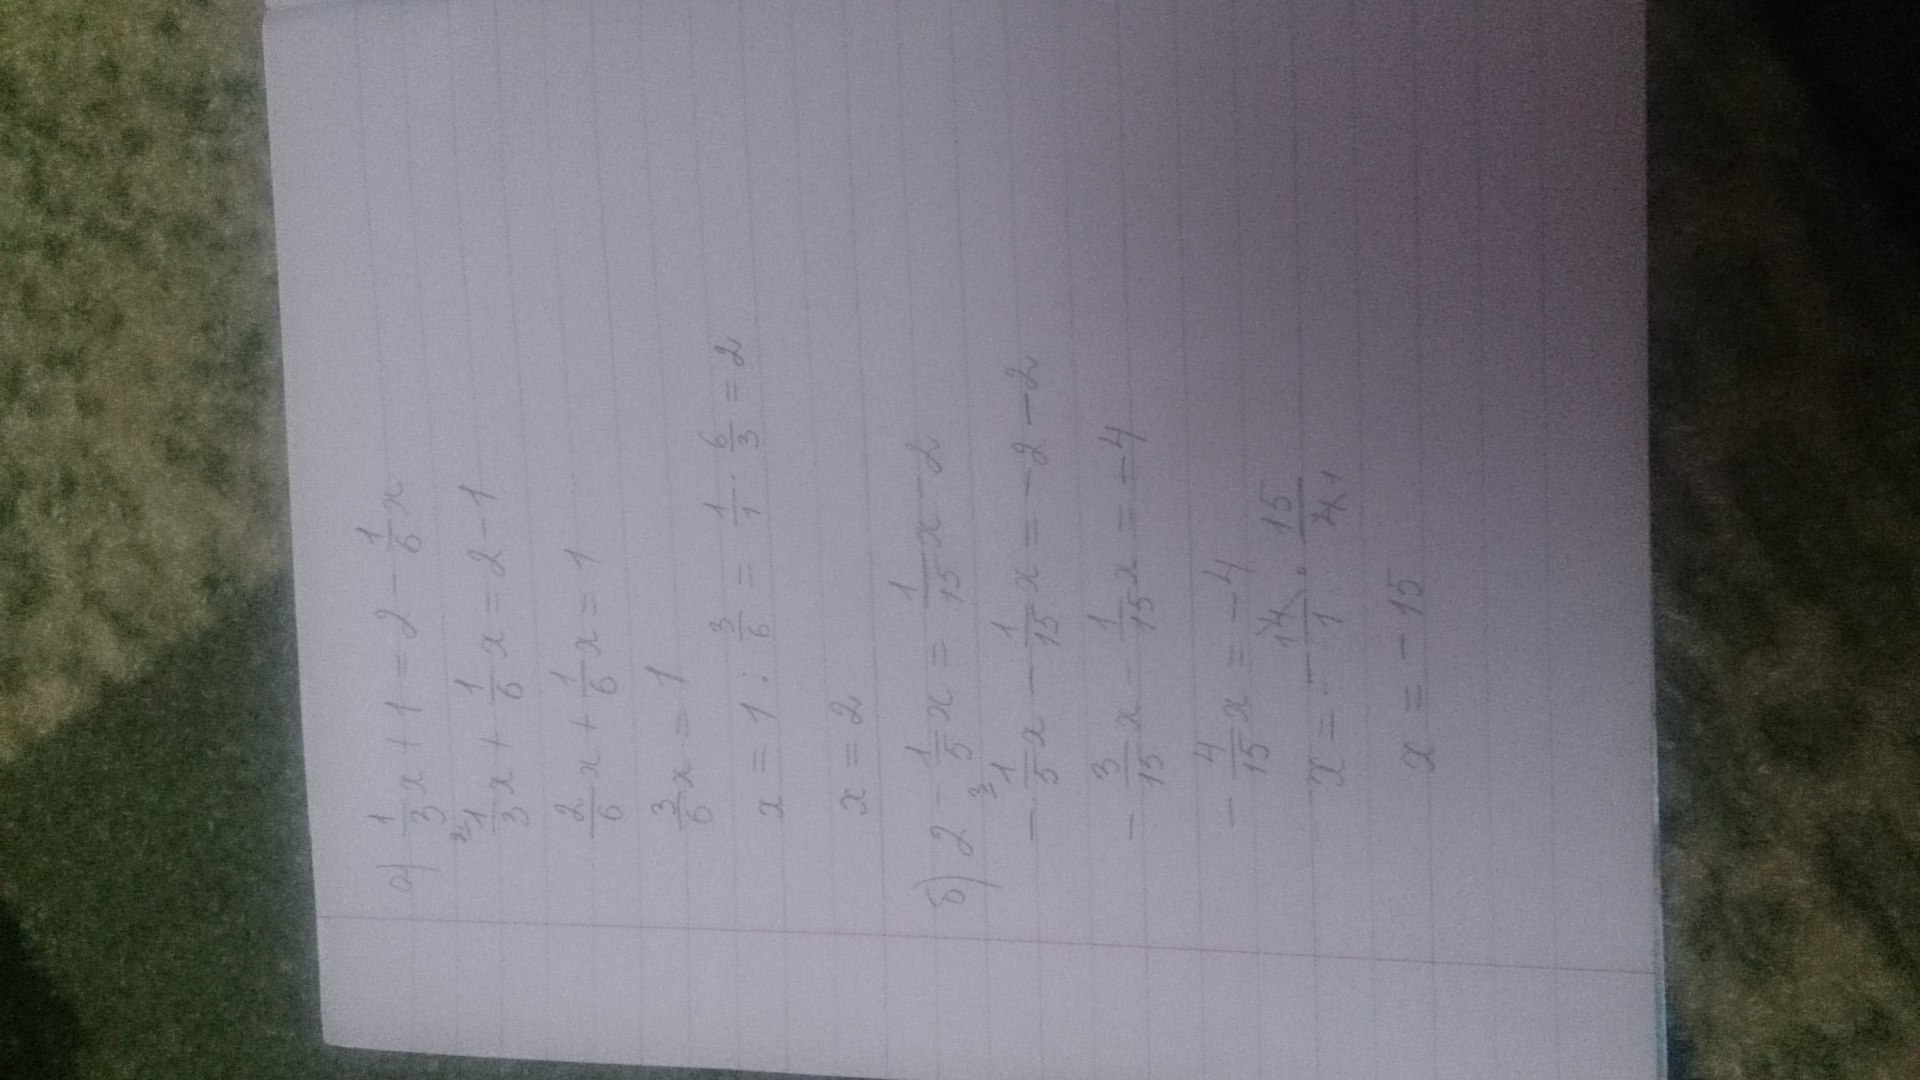 а) 1/3 x + 1 = 2 - 1/6 x
2 1/3 x + 1/6 x = 2 - 1
2/6 x + 1/6 x = 1
3/6 x = 1
x = 1 : 3/6 = 1/1 · 6/3 = 2
x = 2
б) 2 - 1/5 x = 1/15 x - 2
- 3 1/5 x - 1/15 x = -2 - 2
- 3/15 x - 1/15 x = -4
- 4/15 x = -4
x = - 1 4/1 · 15/4 1
x = -15